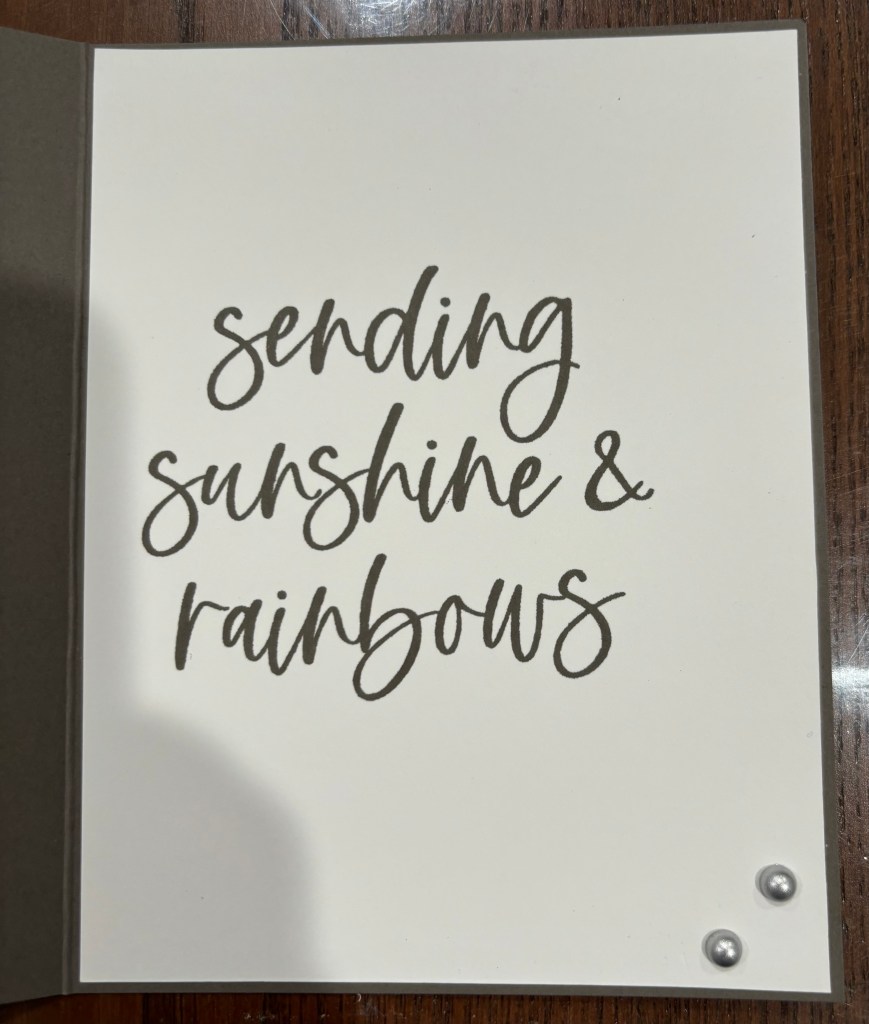 sending
sunshine &
rainbows